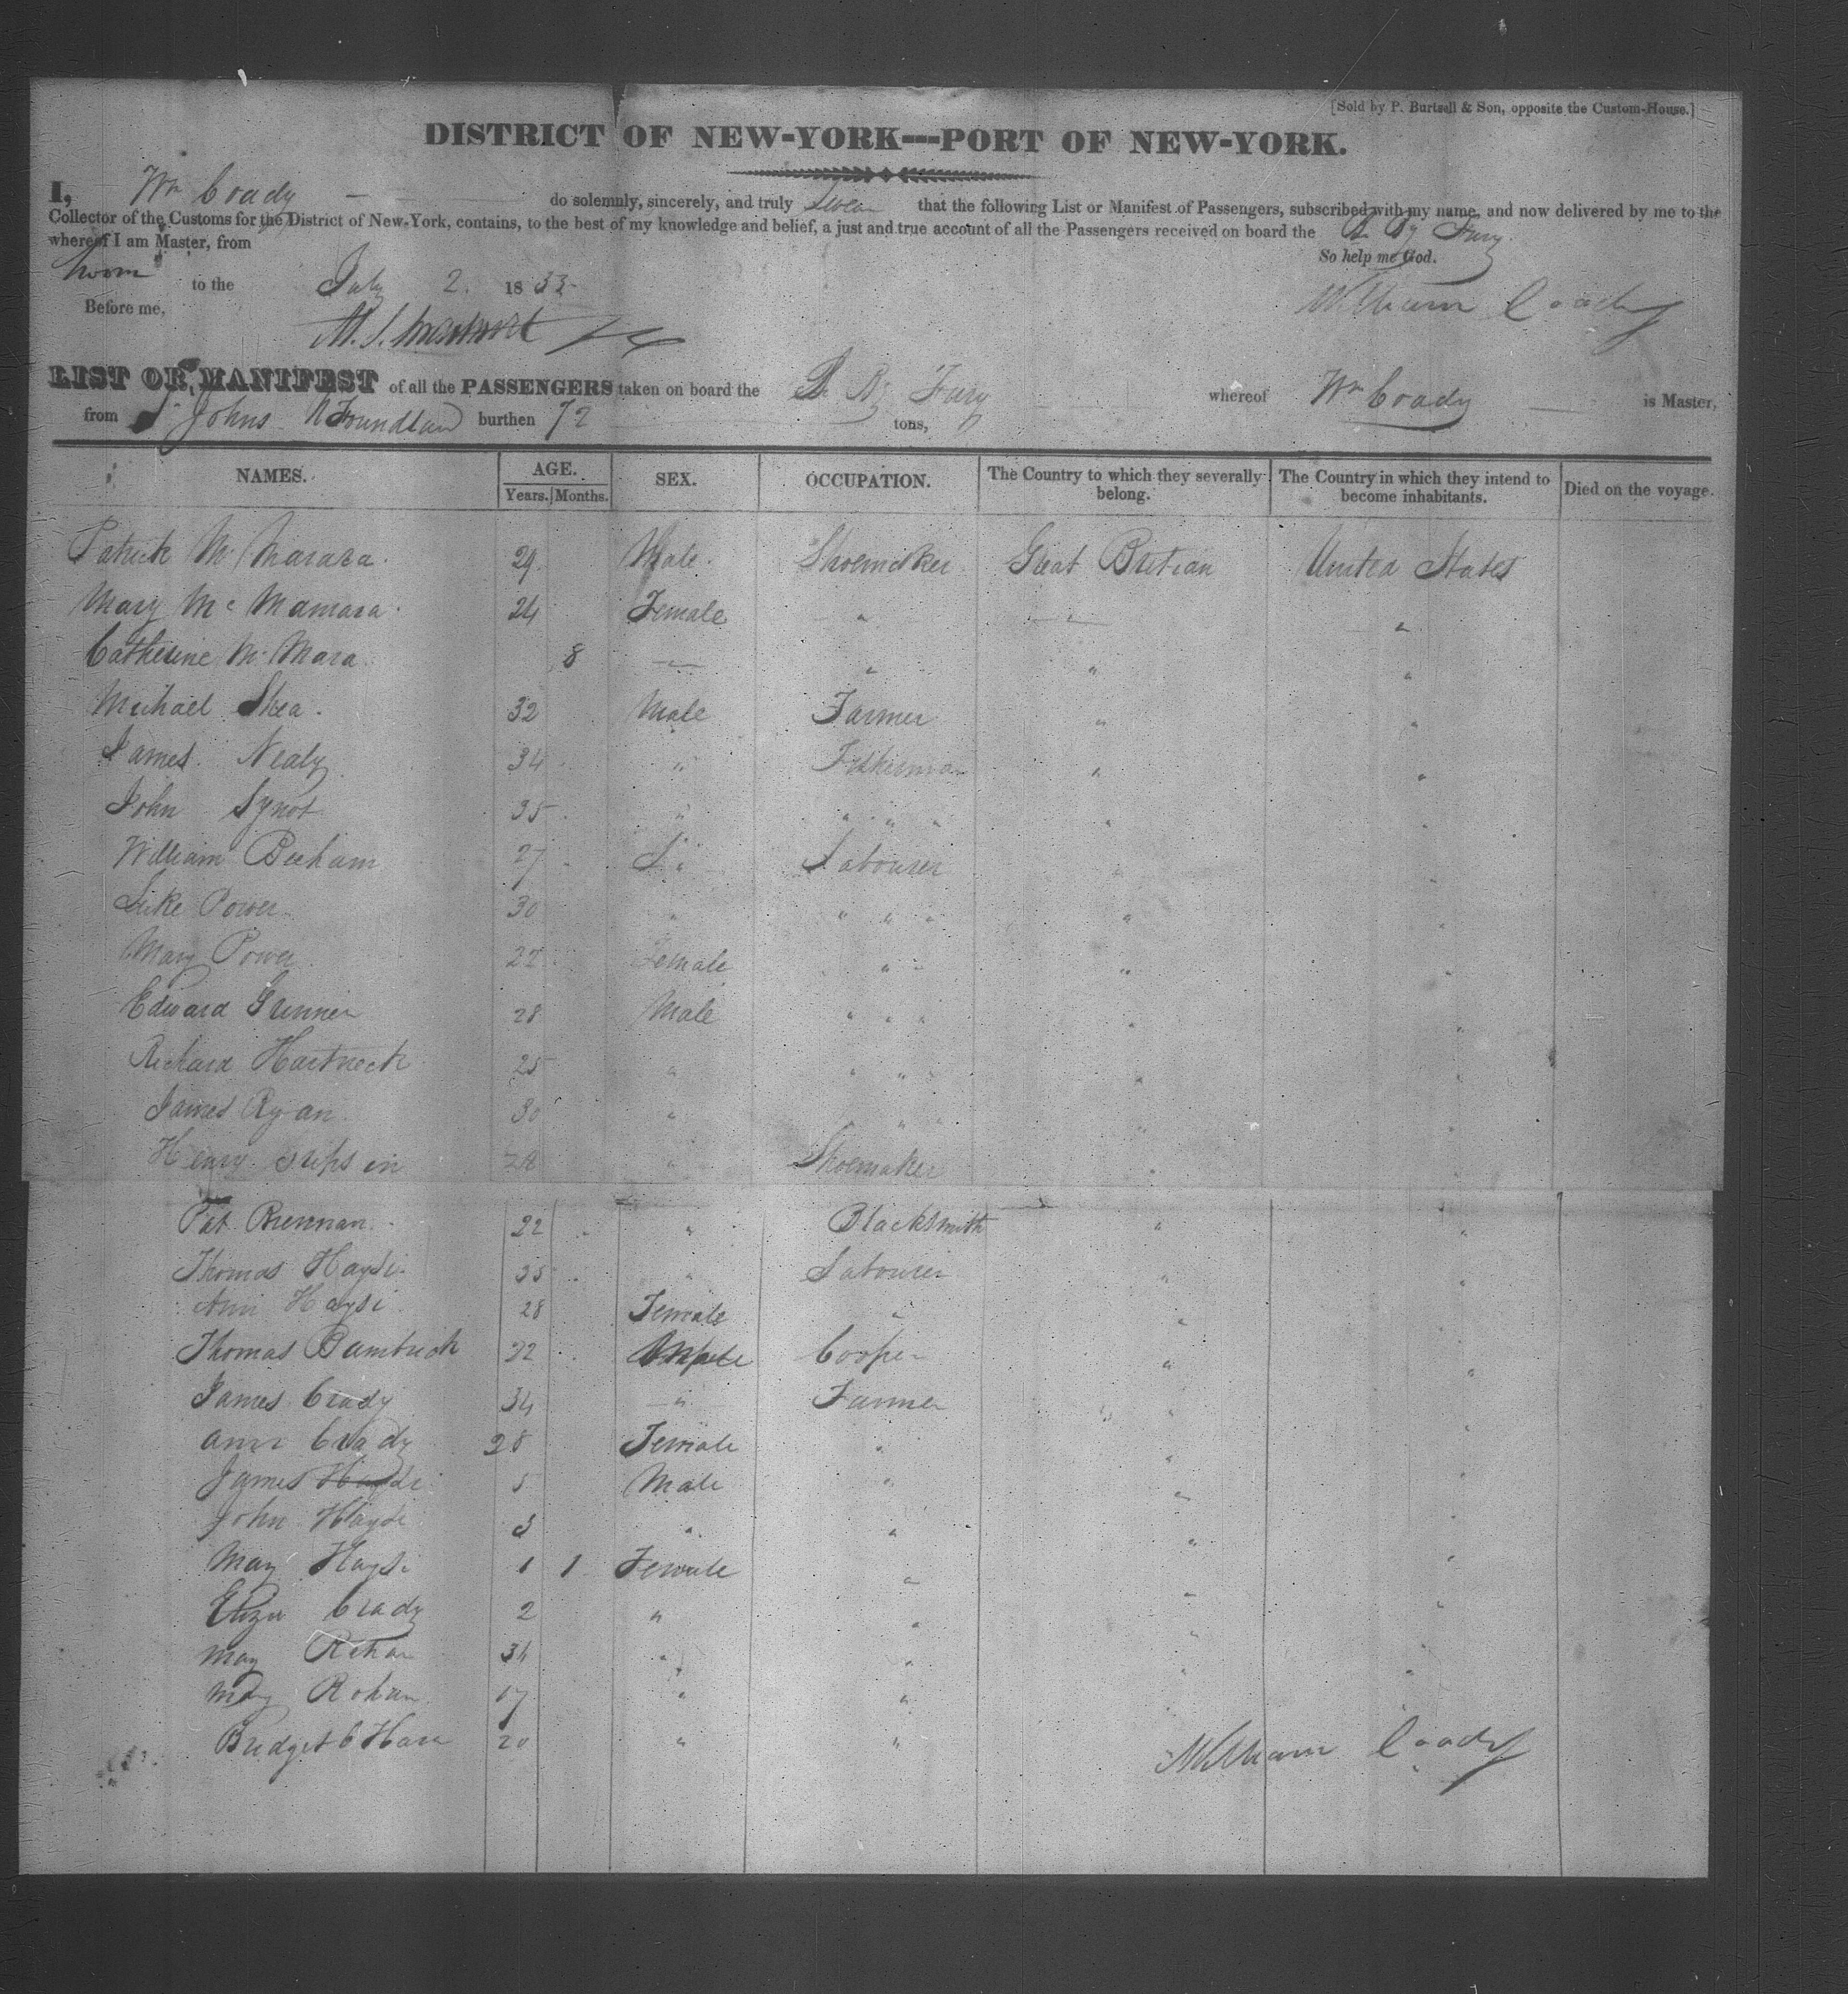 [Sold by P. Burtsell & Son, opposite the Custom-House.]
DISTRICT OF NEW-YORK---PORT OF NEW-YORK.
I, Wm Coady do solemnly, sincerely, and truly Swear that the following List or Manifest of Passengers, subscribed with my name, and now delivered by me to the
Collector of the Customs for the District of New-York, contains, to the best of my knowledge and belief, a just and true account of all the Passengers received on board the Br Bg Fury
whereof I am Master, from
So help me God.
Sworn to the July 2. 1833
William Coady
Before me,
LIST OR MANIFEST of all the PASSENGERS taken on board the Br Bg Fury whereof Wm Coady is Master,
from St Johns NFoundland burthen 72 tons,
NAMES. AGE. SEX. OCCUPATION. The Country to which they severally belong. The Country in which they intend to become inhabitants. Died on the voyage.
Years. Months.
Patrick Mc Marara 29 Male. Shoemaker Great Britian United States
Mary Mc Mamara 24 Female " " "
Catherine Mc Mara 8 " " " "
Michael Shea 32 Male Farmer " "
James Nealy 34 " Fisherman " "
John Synot 35 " " " " " "
William Beeham 27 " Labourer " "
Luke Power 30 " " " " " "
Mary Power 22 Female " " " "
Edward Grenner 28 Male " " " " "
Richard Hartneck 25 " " " " " "
James Ryan 30 " " " " "
Henry 28 " Shoemaker " "
Pat Brennan 22 " Blacksmith " "
Thomas Haysi 35 " Labourer " "
Ann Haysi 28 Female " "
Thomas Bambrick 22 Male Cooper " "
James Crady 34 " Farmer " "
Ann Crady 28 Female " " "
James Haydi 5 Male " " "
John Haydi 3 " " " "
Mary Haysi 1 1 Female " " "
Eliza Crady 2 " " " "
Mary 34 " " " "
Mary Rohan 17 " "
Bridget O Hara 20 " "
William Coady